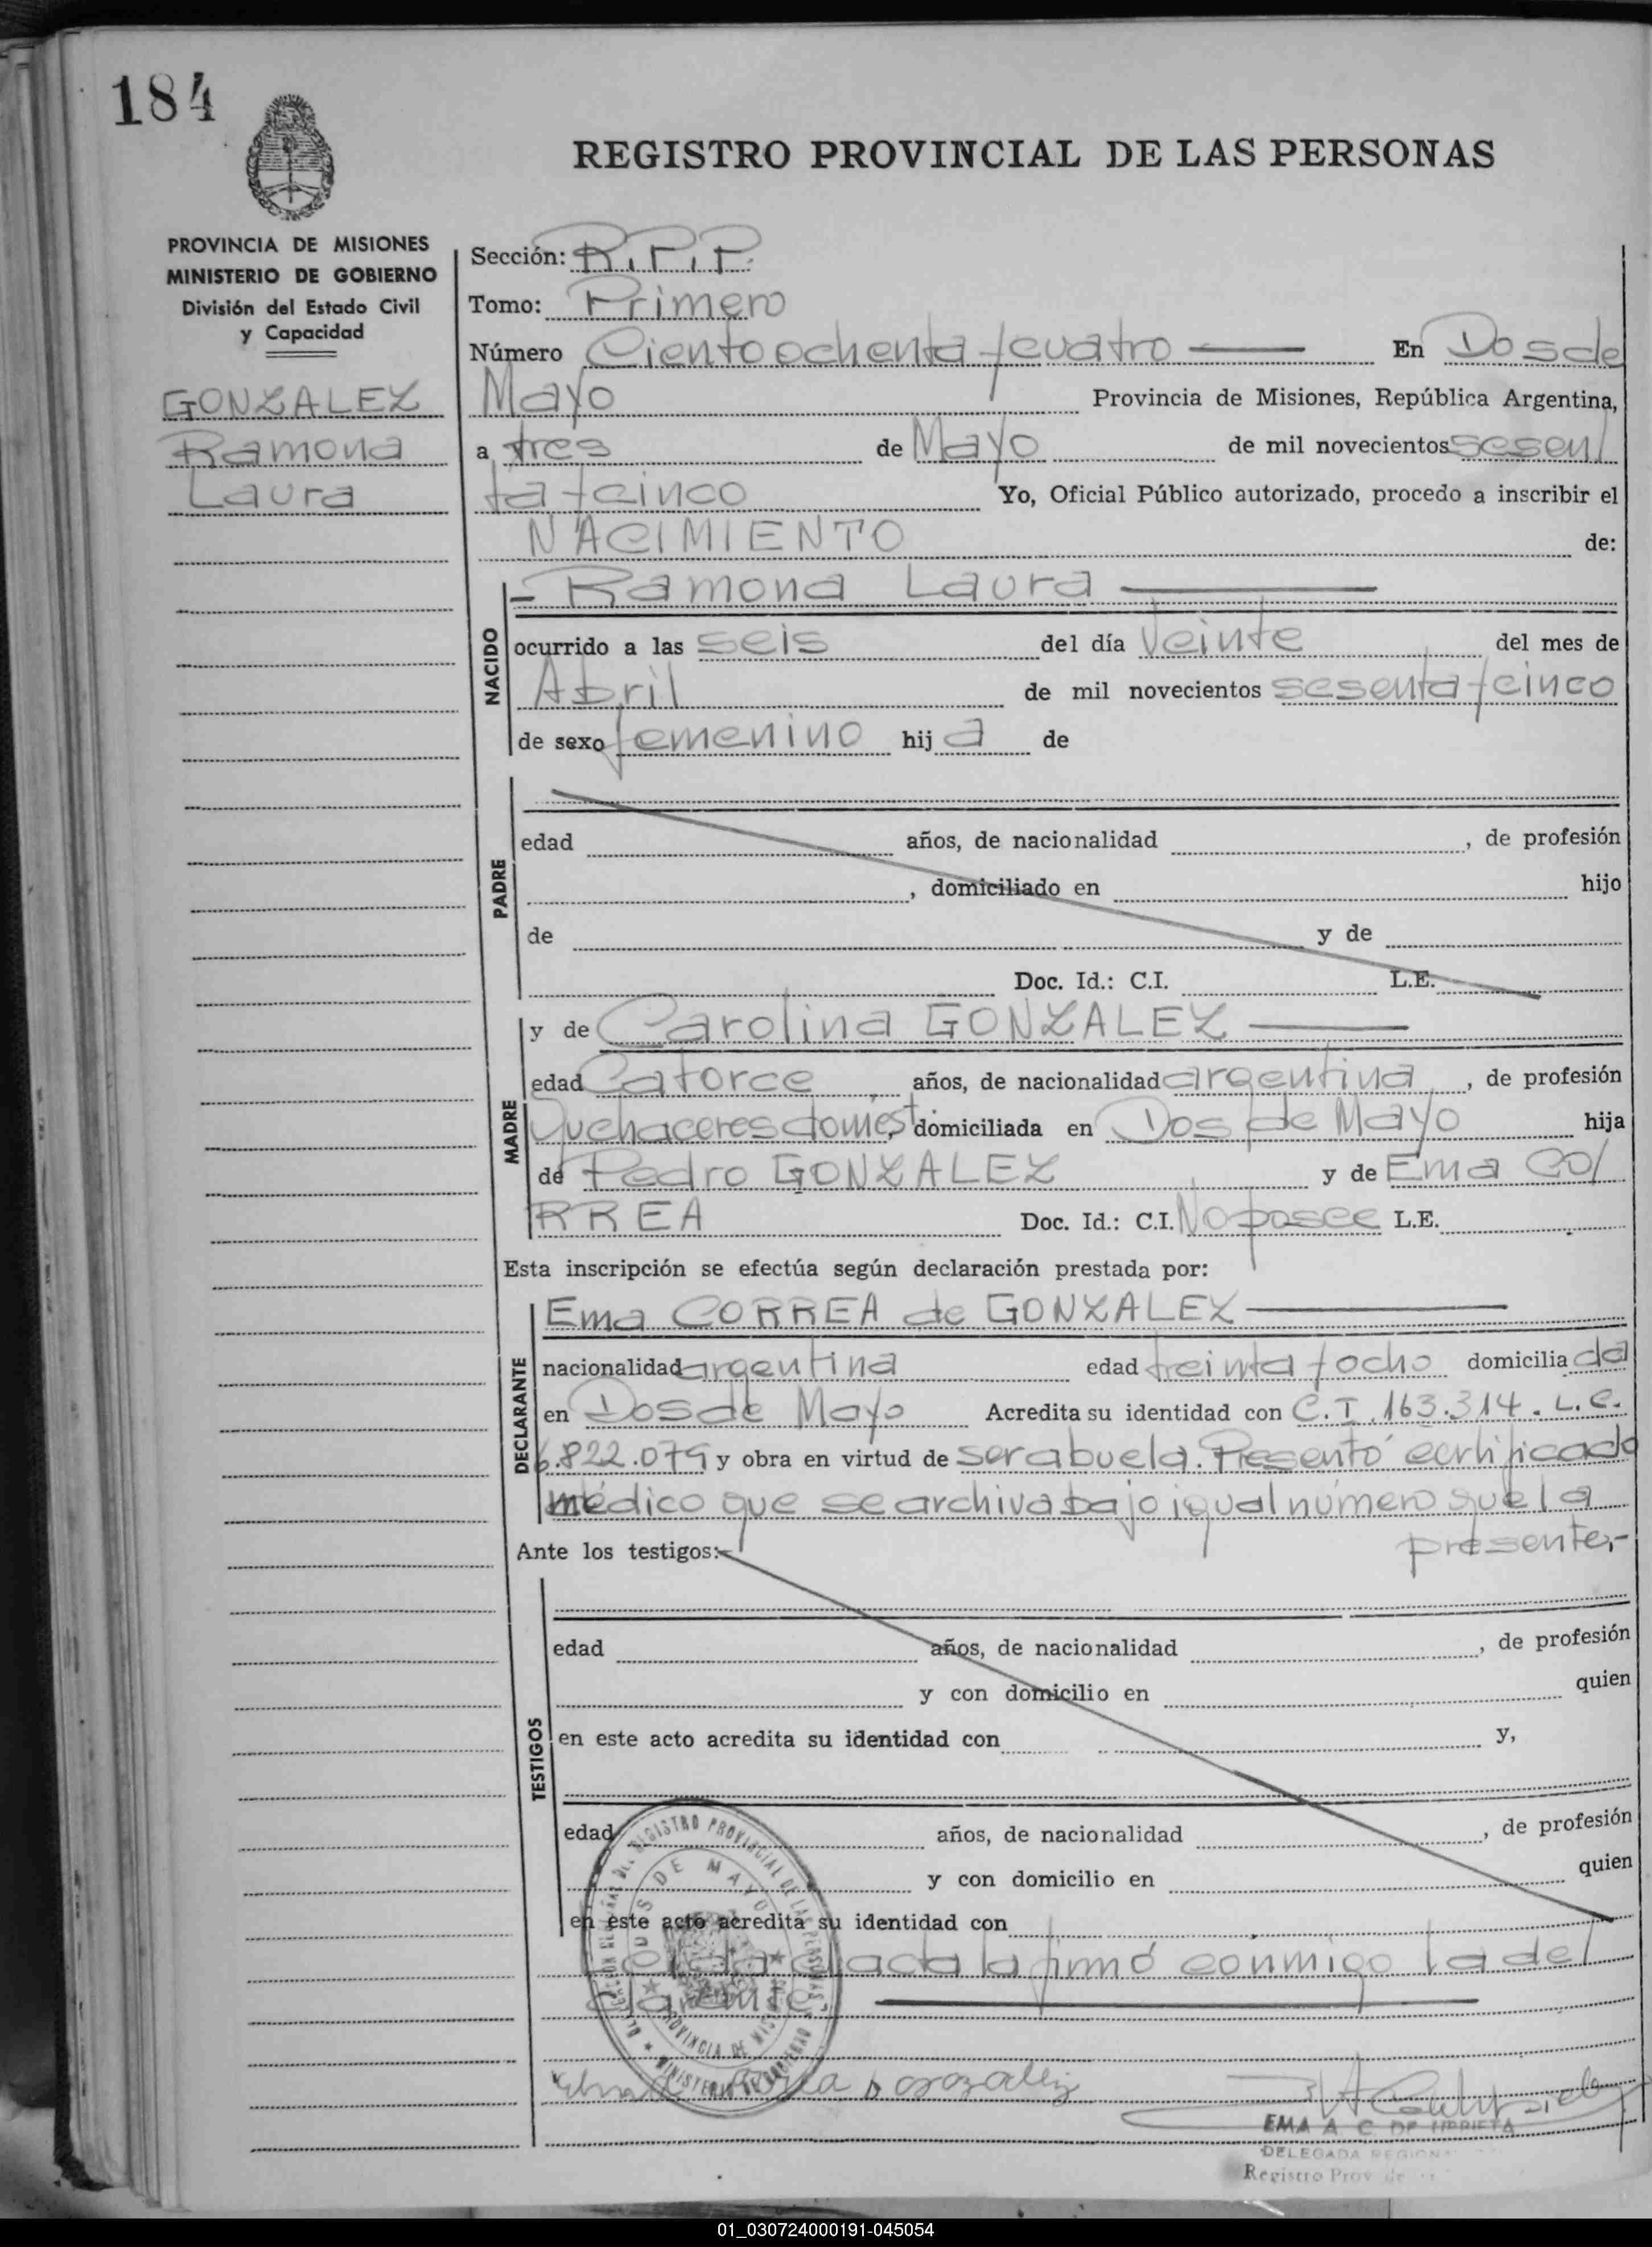 184
REGISTRO PROVINCIAL DE LAS PERSONAS
PROVINCIA DE MISIONES
MINISTERIO DE GOBIERNO
División del Estado Civil
y Capacidad
GONZALEZ
Ramona
Laura
Sección: R.P.P.
Tomo: Primero
Número Ciento ochenta y cuatro En Dos de
Mayo Provincia de Misiones, República Argentina,
a tres de Mayo de mil novecientos sesen/
ta y cinco Yo, Oficial Público autorizado, procedo a inscribir el
NACIMIENTO de:
NACIDO
- Ramona Laura
ocurrido a las seis del día veinte del mes de
Abril de mil novecientos sesenta y cinco
de sexo femenino hij a de
PADRE
edad años, de nacionalidad , de profesión
, domiciliado en hijo
de y de
Doc. Id.: C.I. L.E.
MADRE
y de Carolina GONZALEZ
edad Catorce años, de nacionalidad argentina, de profesión
Quehaceres domést. domiciliada en Dos de Mayo hija
de Pedro GONZALEZ y de Ema CO/
RREA Doc. Id.: C.I. No posee L.E.
Esta inscripción se efectúa según declaración prestada por:
DECLARANTE
Ema CORREA de GONZALEZ
nacionalidad argentina edad treinta y ocho domicilia da
en Dos de Mayo Acredita su identidad con C.I. 163.314. L.C.
6.822.079 y obra en virtud de ser abuela. Presentó certificado
médico que se archiva bajo igual número que la
presente,-
Ante los testigos:
TESTIGOS
edad años, de nacionalidad , de profesión
y con domicilio en quien
en este acto acredita su identidad con y,
edad años, de nacionalidad , de profesión
y con domicilio en quien
en este acto acredita su identidad con
la firmó conmigo la de/
clarante
DOS DE MAYO
PROVINCIA DE
EMA A. C. DE URRIETA
DELEGADA REGIONAL
Registro Prov. de
01_030724000191-045054